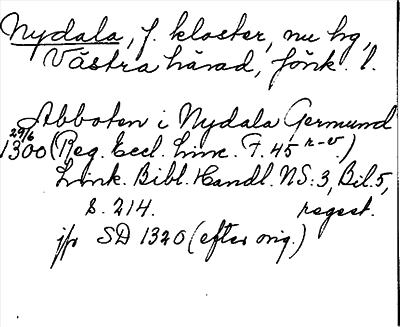 Nydala, f. kloster, nu hg,
Västra härad, Jönk. l.
Abboten i Nydala Germund
29/6 1300 (Reg. Eccl. Linc. F. 45 r-v)
Link. Bibl. Handl. NS:3, Bil. 5,
S. 214. regest.
jfr SD 1320 (efter orig.)